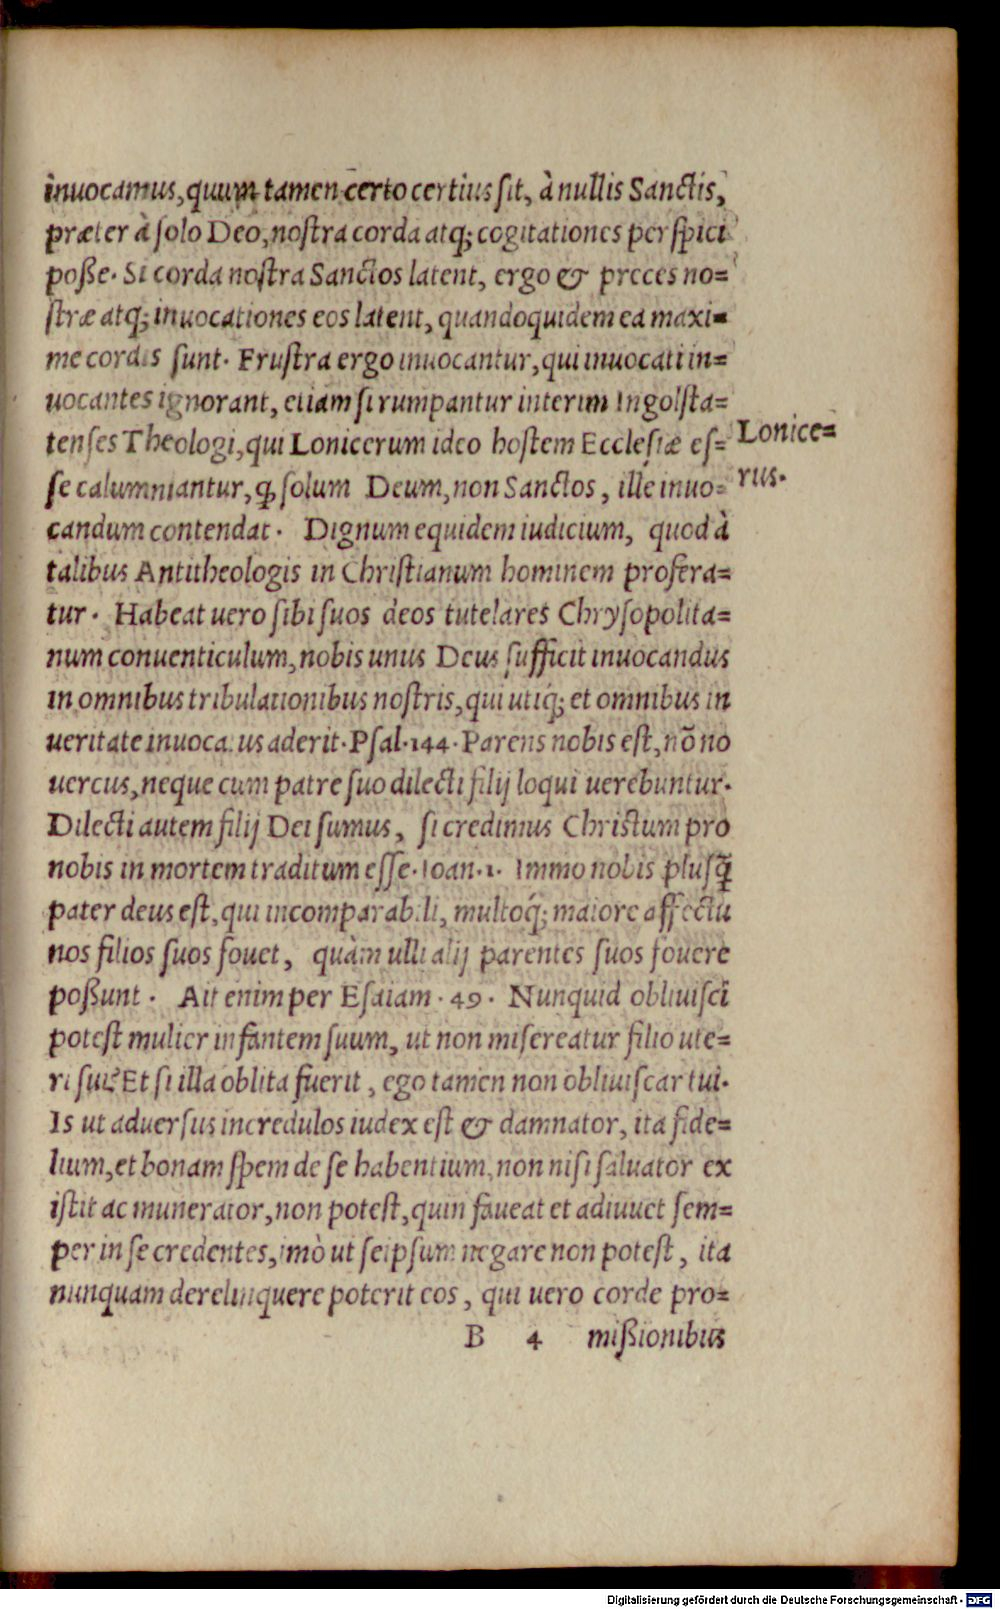 inuocamus, quum tamen certo certius sit, à nullis Sanctis,
præter à solo Deo, nostra corda atq; cogitationes perspici
poße. Si corda nostra Sanctos latent, ergo & preces no=
stræ atq; inuocationes eos latent, quandoquidem ea maxi=
me cordis sunt. Frustra ergo inuocantur, qui inuocati in=
uocantes ignorant, etiam si rumpantur interim Ingolsta=
tenses Theologi, qui Lonicerum ideo hostem Ecclesiæ es=
se calumniantur, ꝙ solum Deum, non Sanctos, ille inuo=
candum contendat. Dignum equidem iudicium, quod à
talibus Antitheologis in Christianum hominem profera=
tur. Habeat uero sibi suos deos tutelares Chrysopolita=
num conuenticulum, nobis unus Deus sufficit inuocandus
in omnibus tribulationibus nostris, qui utiq; et omnibus in
ueritate inuocatus aderit. Psal. 144. Parens nobis est, nõ no
uercus, neque cum patre suo dilecti filij loqui uerebuntur.
Dilecti autem filij Dei sumus, si credimus Christum pro
nobis in mortem traditum esse. Ioan. 1. Immo nobis plusꝗ̃
pater deus est, qui incomparabili, multoq́; maiore affectu
nos filios suos fouet, quàm ulli alij parentes suos fouere
poßunt. Ait enim per Esaiam. 49. Nunquid obliuisci
potest mulier infantem suum, ut non misereatur filio ute=
ri sui? Et si illa oblita fuerit, ego tamen non obliuiscar tui.
Is ut aduersus incredulos iudex est & damnator, ita fide=
lium, et bonam spem de se habentium, non nisi saluator ex
istit ac munerator, non potest, quin faueat et adiuuet sem=
per in se credentes, imò ut seipsum negare non potest, ita
nunquam derelinquere poterit eos, qui uero corde pro=
B 4 mißionibus
Lonice=
rus.
Digitalisierung gefördert durch die Deutsche Forschungsgemeinschaft - DFG